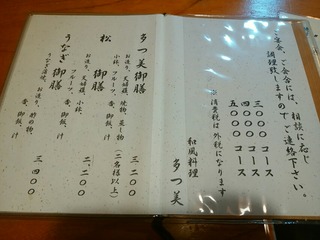 ご宴会、ご会合には、相談に応じ
調理致しますのでご連絡下さい。
三〇〇〇 コース
四〇〇〇 コース
五〇〇〇 コース
※ 消費税は外税になります
和風料理
多つ美
多つ美御膳 三、二〇〇
お造り、天婦羅、焼物、蒸し物
小鉢、フルーツ、香、御飯、汁
(二名様以上)
松 御膳 二、二〇〇
お造り、天婦羅、小鉢、
フルーツ、香、御飯、汁
うなぎ 御膳 三、四〇〇
うなぎ蒲焼、お造り、酢の物、
香、御飯、汁